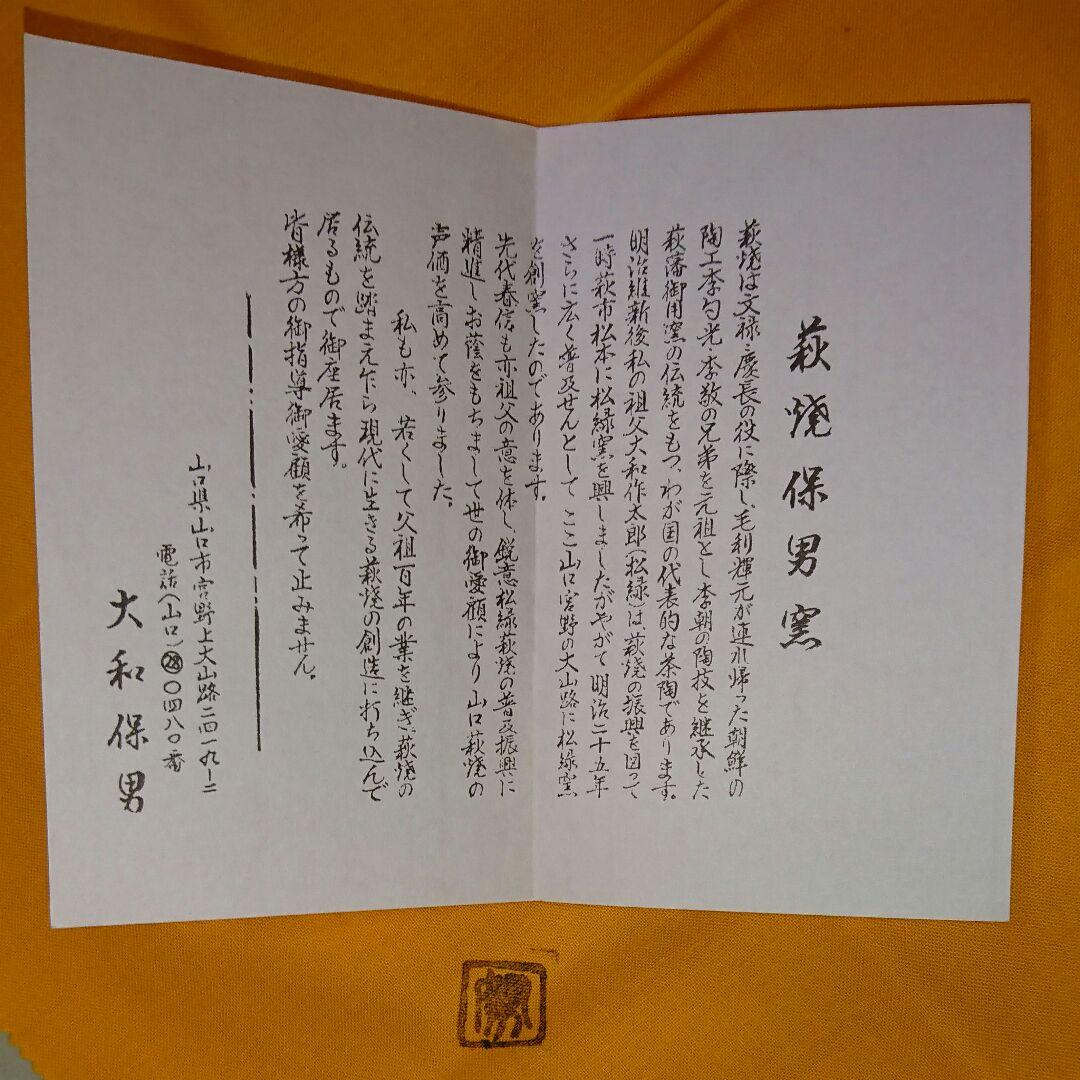 萩焼保男窯
萩焼は文禄・慶長の役に際し、毛利輝元が連れ帰った朝鮮の
陶工李勺光・李敬の兄弟を元祖とし李朝の陶技を継承した
萩藩御用窯の伝統をもつ、わが国の代表的な茶陶であります。
明治維新後私の祖父大和作太郎(松緑)は萩焼の振興を図って
一時萩市松本に松緑窯を興しましたがやがて明治二十五年
さらに広く普及せんとしてここ山口宮野の大山路に松緑窯
を創窯したのであります。
先代春信も亦祖父の意を体し、鋭意松緑萩焼の普及振興に
精進しお蔭をもちまして世の御愛顧により山口萩焼の
声価を高めて参りました。
私も亦、若くして父祖百年の業を継ぎ、萩焼の
伝統を踏まえ乍ら現代に生きる萩焼の創造に打ち込んで
居るもので御座居ます。
皆様方の御指導御愛顧を希って止みません。
山口県山口市宮野上大山路二四一九ー二
電話(山口)㉘〇四八〇番
大和保男